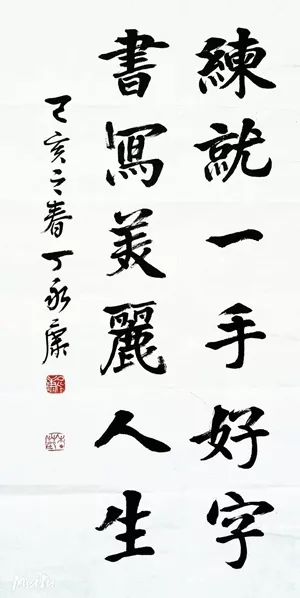 練就一手好字
書寫美麗人生
己亥之春丁永康